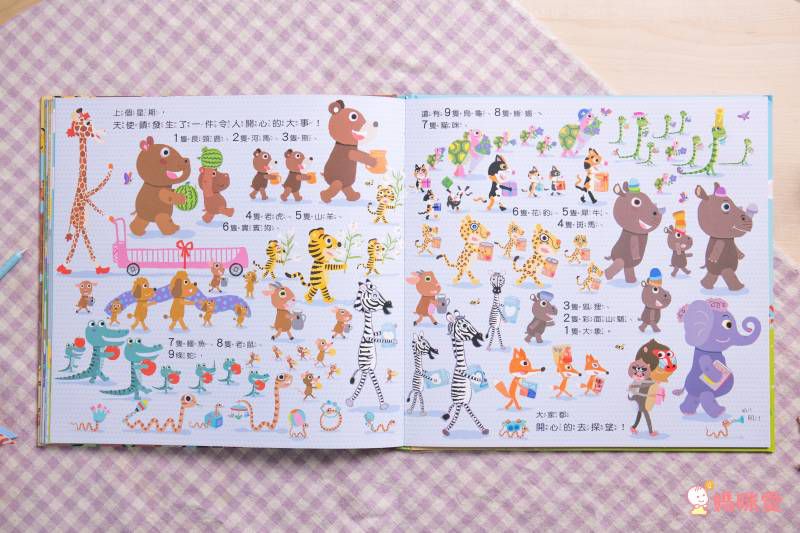 上個星期，
天使鎮發生了一件令人開心的大事！
1隻長頸鹿、2隻河馬、3隻熊、
4隻老虎、5隻山羊、
6隻貴賓狗、
7隻鱷魚、8隻老鼠、
9條蛇、
還有9隻烏龜、8隻蜥蜴、
7隻貓咪、
6隻花豹、5隻犀牛、
4隻斑馬、
3隻狐狸、
2隻彩面山魈、
1隻大象，
大家都
開心的去探望！
媽咪愛